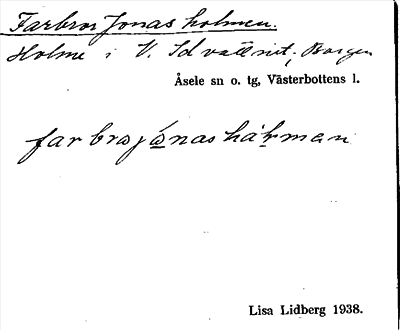 Farbror Jonas holmen.
Holme i V. Idvattnet, Borgen
Åsele sn o. tg, Västerbottens l.
farbrojọ́nashåḷman
Lisa Lidberg 1938.